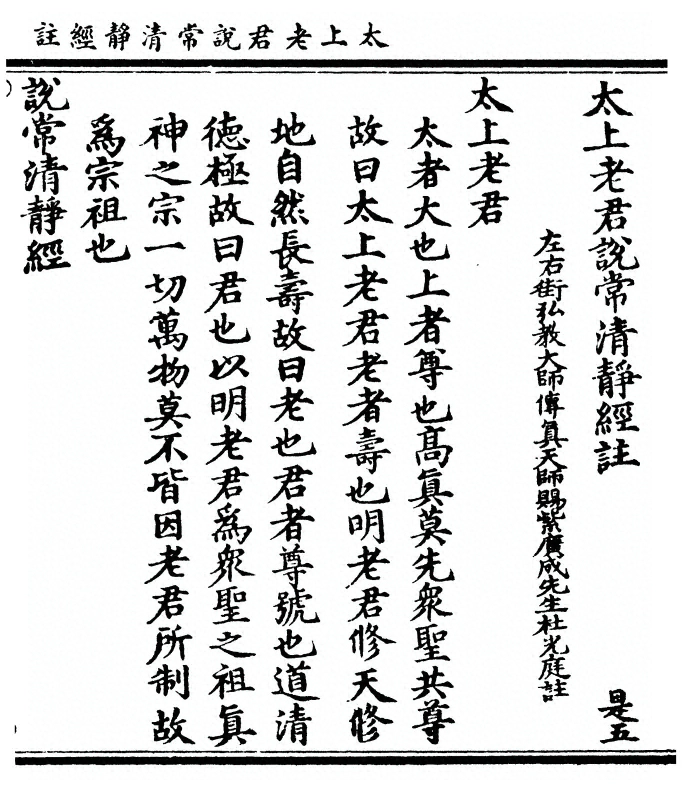 太上老君說常清靜經註
太上老君說常清靜經註 是五
左右街弘教大師傳眞天師賜紫廣成先生杜光庭註
太上老君
太者大也上者尊也高眞莫先衆聖共尊
故曰太上老君老者壽也明老君修天修
地自然長壽故曰老也君者尊號也道清
德極故曰君也以明老君爲衆聖之祖眞
神之宗一切萬物莫不皆因老君所制故
爲宗祖也
說常清靜經